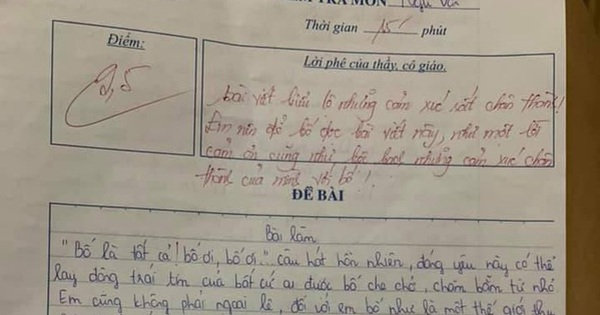 TRA MÔN: Ngữ văn
Thời gian 15' phút
Điểm:
9,5
Lời phê của thầy, cô giáo.
Bài viết biểu lộ những cảm xúc rất chân thành!
Em nên để bố đọc bài viết này, như một lời
cảm ơn cũng như bộc bạch những cảm xúc chân
thành của mình với bố!
ĐỀ BÀI
Bài làm
"Bố là tất cả! bố ơi, bố ơi.." câu hát hồn nhiên, đáng yêu này có thể
lay động trái tim của bất cứ ai được bố che chở, chăm bẵm từ nhỏ.
Em cũng không phải ngoại lệ, đối với em bố như là một thế giới thu